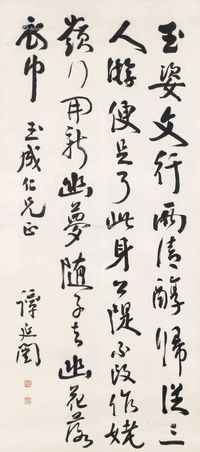 玉姿文行兩清醇歸從三
人游便足了此身公隄不改作姥
嶺行開新幽夢隨子去幽花落
衣巾
玉成仁兄正
譚延闓